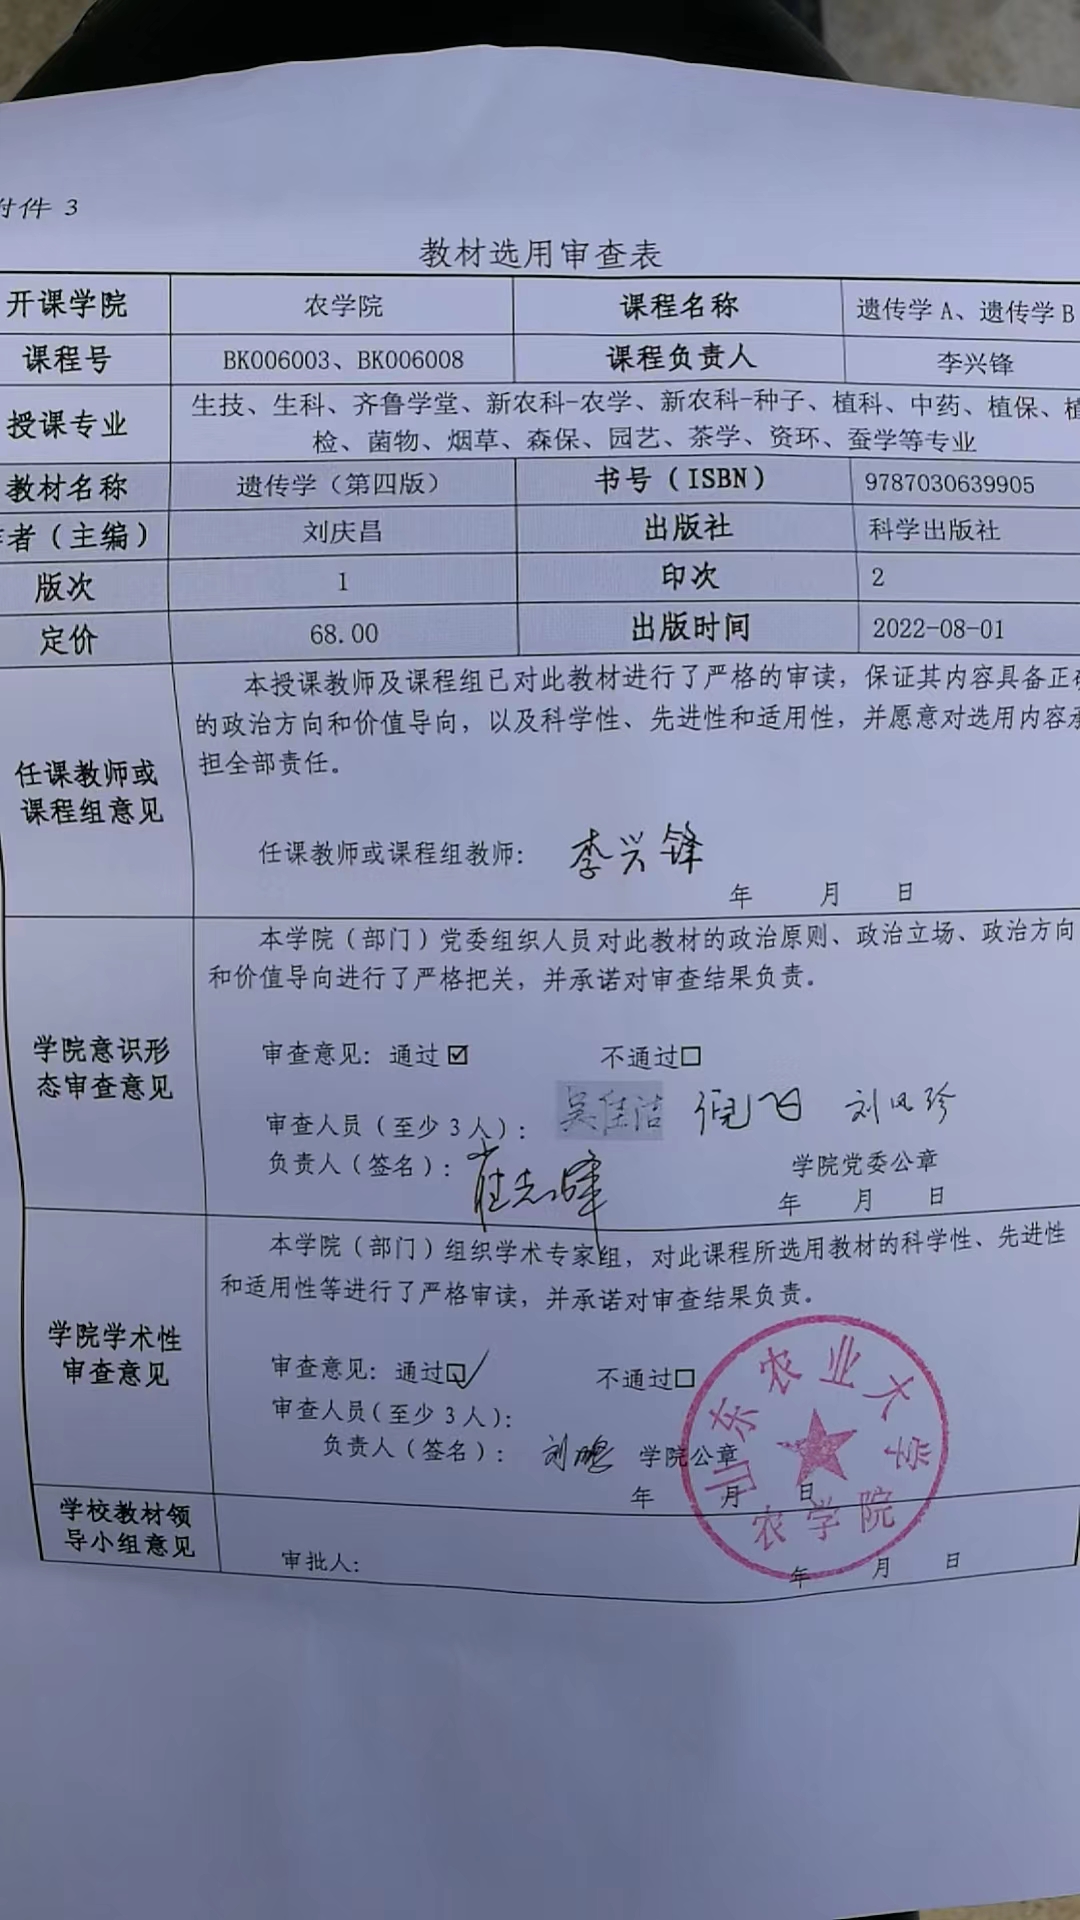 附件 3
教材选用审查表
开课学院 农学院 课程名称 遗传学 A、遗传学 B
课程号 BK006003、BK006008 课程负责人 李兴锋
授课专业 生技、生科、齐鲁学堂、新农科-农学、新农科-种子、植科、中药、植保、植
检、菌物、烟草、森保、园艺、茶学、资环、蚕学等专业
教材名称 遗传学（第四版） 书号（ISBN） 9787030639905
者（主编） 刘庆昌 出版社 科学出版社
版次 1 印次 2
定价 68.00 出版时间 2022-08-01
任课教师或
课程组意见
本授课教师及课程组已对此教材进行了严格的审读，保证其内容具备正确
的政治方向和价值导向，以及科学性、先进性和适用性，并愿意对选用内容承
担全部责任。
任课教师或课程组教师： 李兴锋
年 月 日
学院意识形
态审查意见
本学院（部门）党委组织人员对此教材的政治原则、政治立场、政治方向
和价值导向进行了严格把关，并承诺对审查结果负责。
审查意见：通过☑ 不通过□
审查人员（至少 3 人）： 吴佳洁 倪飞 刘凤珍
负责人（签名）： 学院党委公章
年 月 日
学院学术性
审查意见
本学院（部门）组织学术专家组，对此课程所选用教材的科学性、先进性
和适用性等进行了严格审读，并承诺对审查结果负责。
审查意见：通过☑ 不通过□
审查人员（至少 3 人）：
负责人（签名）： 刘鹏 学院公章
年 月 日
山东农业大学
农学院
学校教材领
导小组意见
审批人：
年 月 日